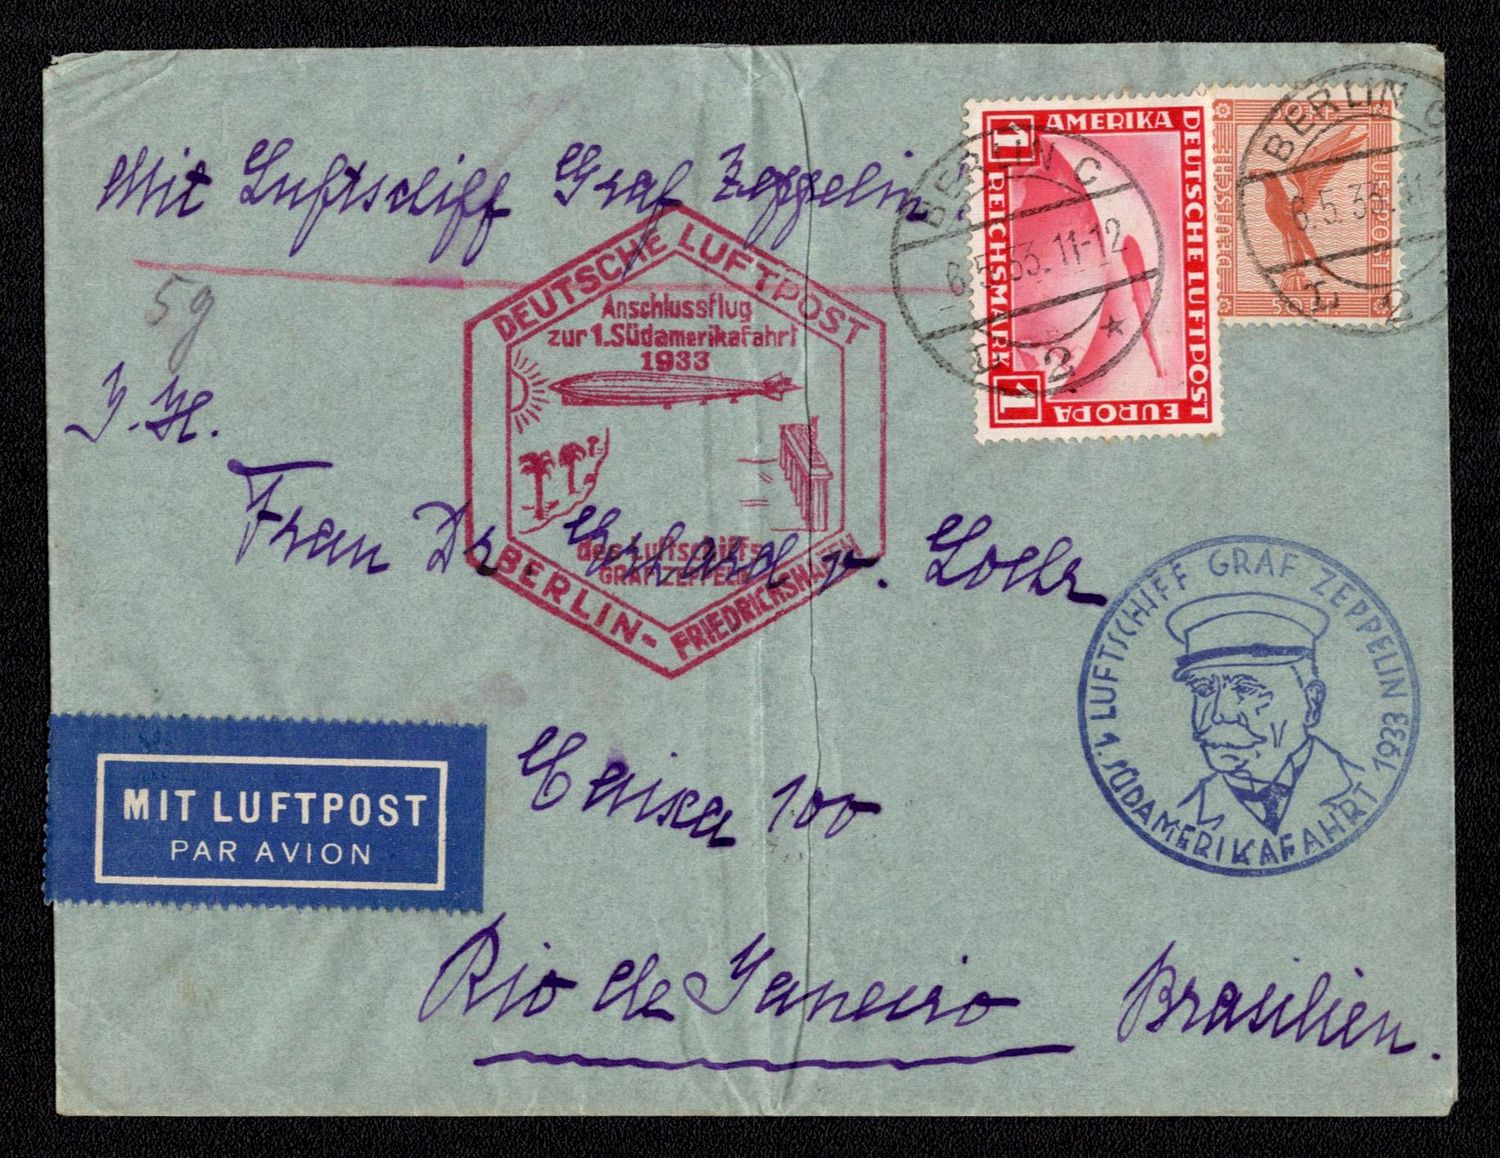 Mit Luftschiff Graf Zeppelin.
5g
I. H.
Frau Dr Erhard v. Loehr
Caixa 100
Rio de Janeiro Brasilien.
AMERIKA
DEUTSCHE LUFTPOST
EUROPA
1 REICHSMARK 1
DEUTSCHE
LUFTPOST
BERLIN C
6.5.33.11-12
2
BERLIN C
6.5.33.11
2
DEUTSCHE LUFTPOST
Anschlussflug
zur 1. Südamerikafahrt
1933
des Luftschiffs
GRAF ZEPPELIN
BERLIN-
FRIEDRICHSHAFEN
LUFTSCHIFF GRAF ZEPPELIN
1. SÜDAMERIKAFAHRT 1933
MIT LUFTPOST
PAR AVION